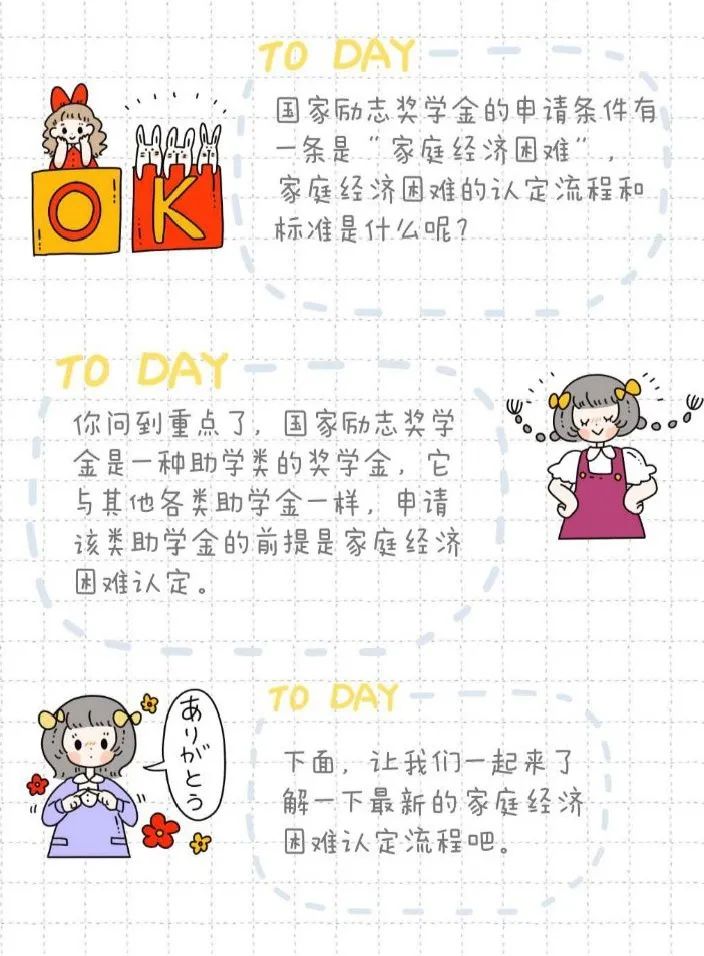 TO DAY
国家励志奖学金的申请条件有
一条是“家庭经济困难”，
家庭经济困难的认定流程和
标准是什么呢？
OK
TO DAY
你问到重点了，国家励志奖学
金是一种助学类的奖学金，它
与其他各类助学金一样，申请
该类助学金的前提是家庭经济
困难认定。
TO DAY
ありがとう
下面，让我们一起来了
解一下最新的家庭经济
困难认定流程吧。